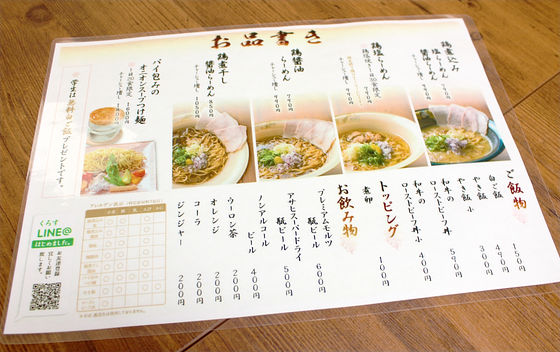 お品書き
鶏煮込み
醤油らーめん
チャーシュー増し
鶏塩らーめん
チャーシュー増し
鶏醤油
らーめん 740円
チャーシュー増し 990円
鶏煮干し
醤油らーめん 850円
チャーシュー増し 1050円
パイ包みの
オニオンスープつけ麺
1日20食限定 1600円
学生は無料白ご飯プレゼントです。
ご飯物
白ご飯 150円
やき飯 小 300円
やき飯 490円
和牛の
ローストビーフ丼 小 400円
和牛の
ローストビーフ丼 590円
トッピング
煮卵 100円
お飲み物
プレミアムモルツ
瓶ビール 600円
アサヒスーパードライ
瓶ビール 500円
ノンアルコール
ビール 400円
ウーロン茶 200円
オレンジ 200円
コーラ 200円
ジンジャー 200円
くろす
LINE@
はじめました。
お友達登録
宜しくお願い
致します。